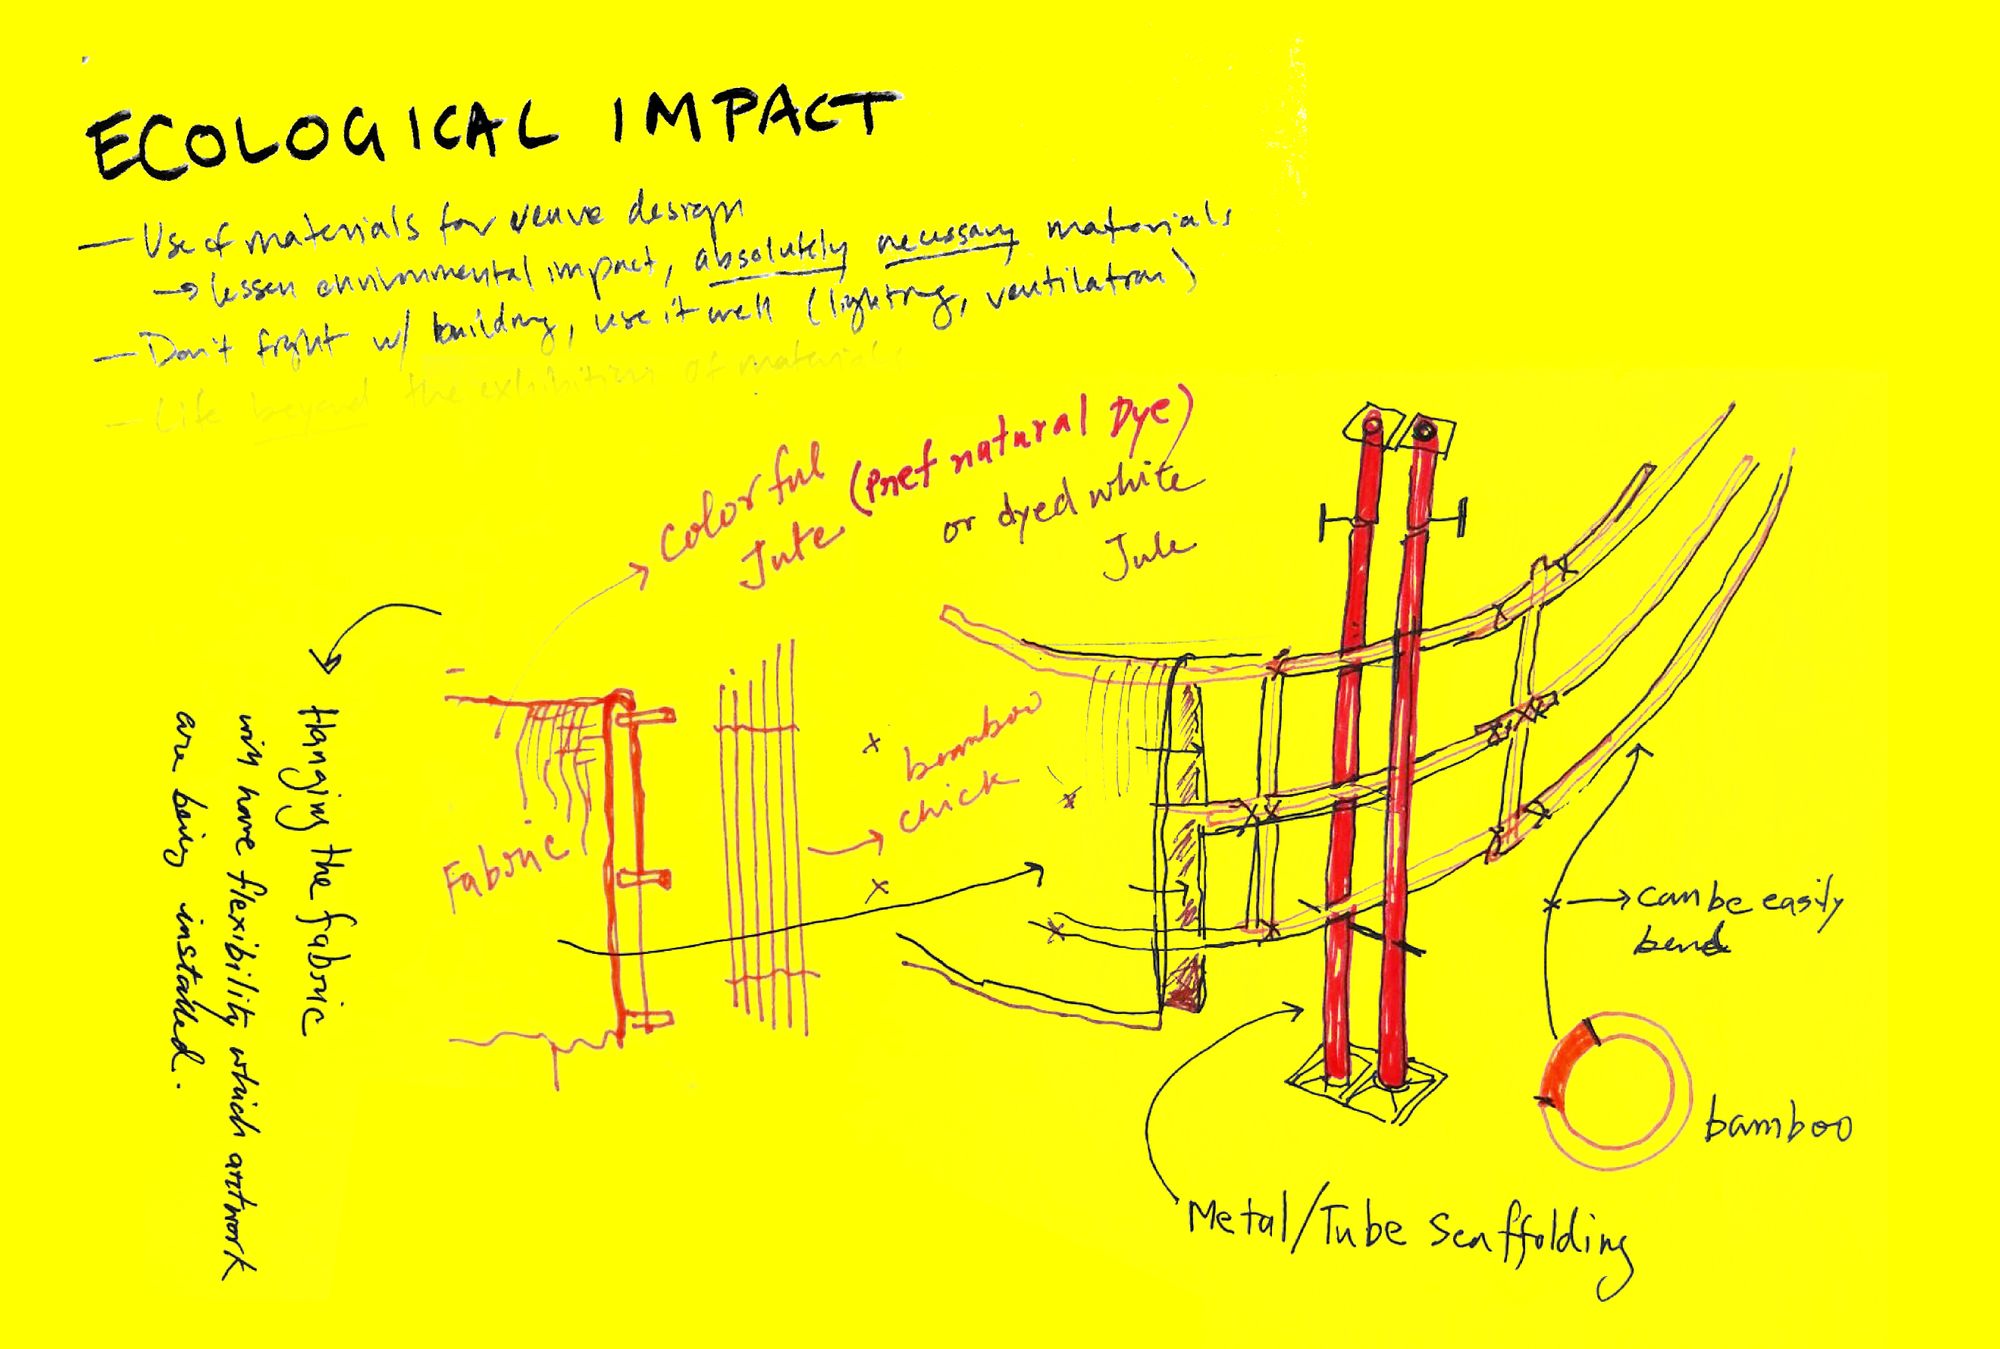 ECOLOGICAL IMPACT
— Use of materials for venue design
→ lessen environmental impact, absolutely necessary materials
— Don't fight w/ building, use it well (lighting, ventilation)
— Life beyond the exhibition of materials
Colorful
Jute (Pref natural Dye)
or dyed white
Jute
Hanging the fabric
will have flexibility which artwork
are being installed.
Fabric
bamboo
chick
can be easily
bend
bamboo
Metal/Tube Scaffolding